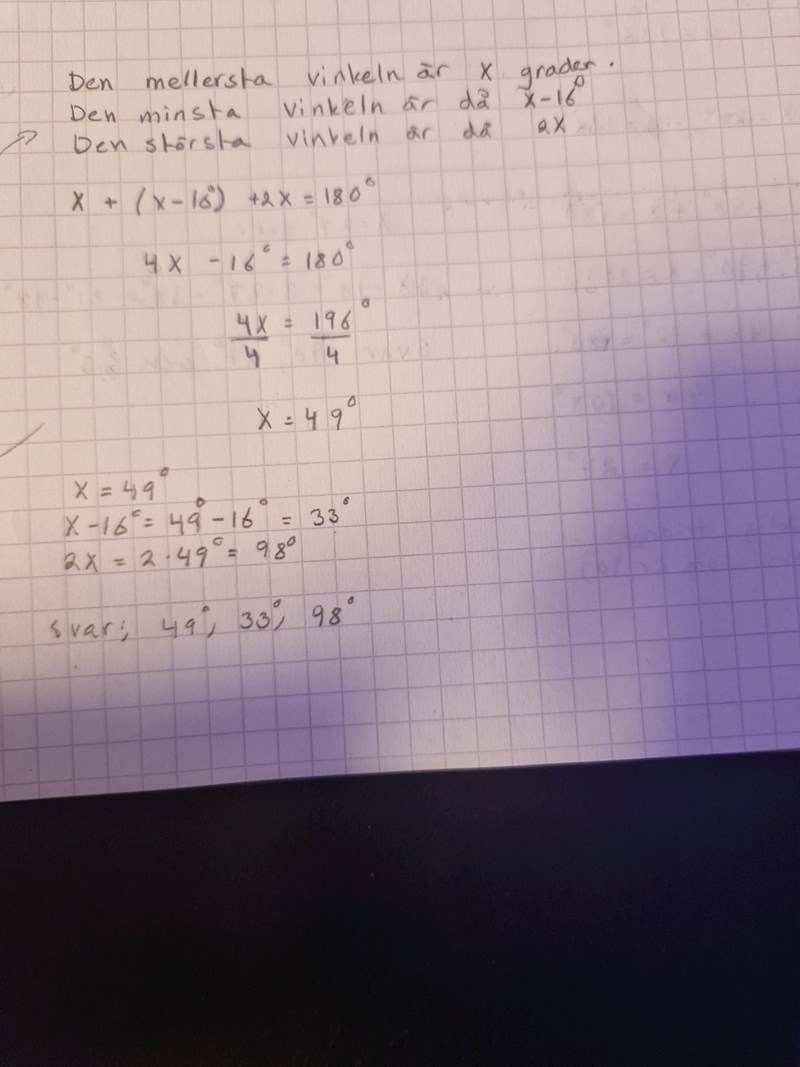 Den mellersta vinkeln är x grader.
Den minsta vinkeln är då x-16°
Den största vinkeln är då 2x
x + (x-16°) +2x = 180°
4x -16° = 180°
4x/4 = 196°/4
x = 49°
x = 49°
x-16° = 49°-16° = 33°
2x = 2·49° = 98°
svar; 49°, 33°, 98°